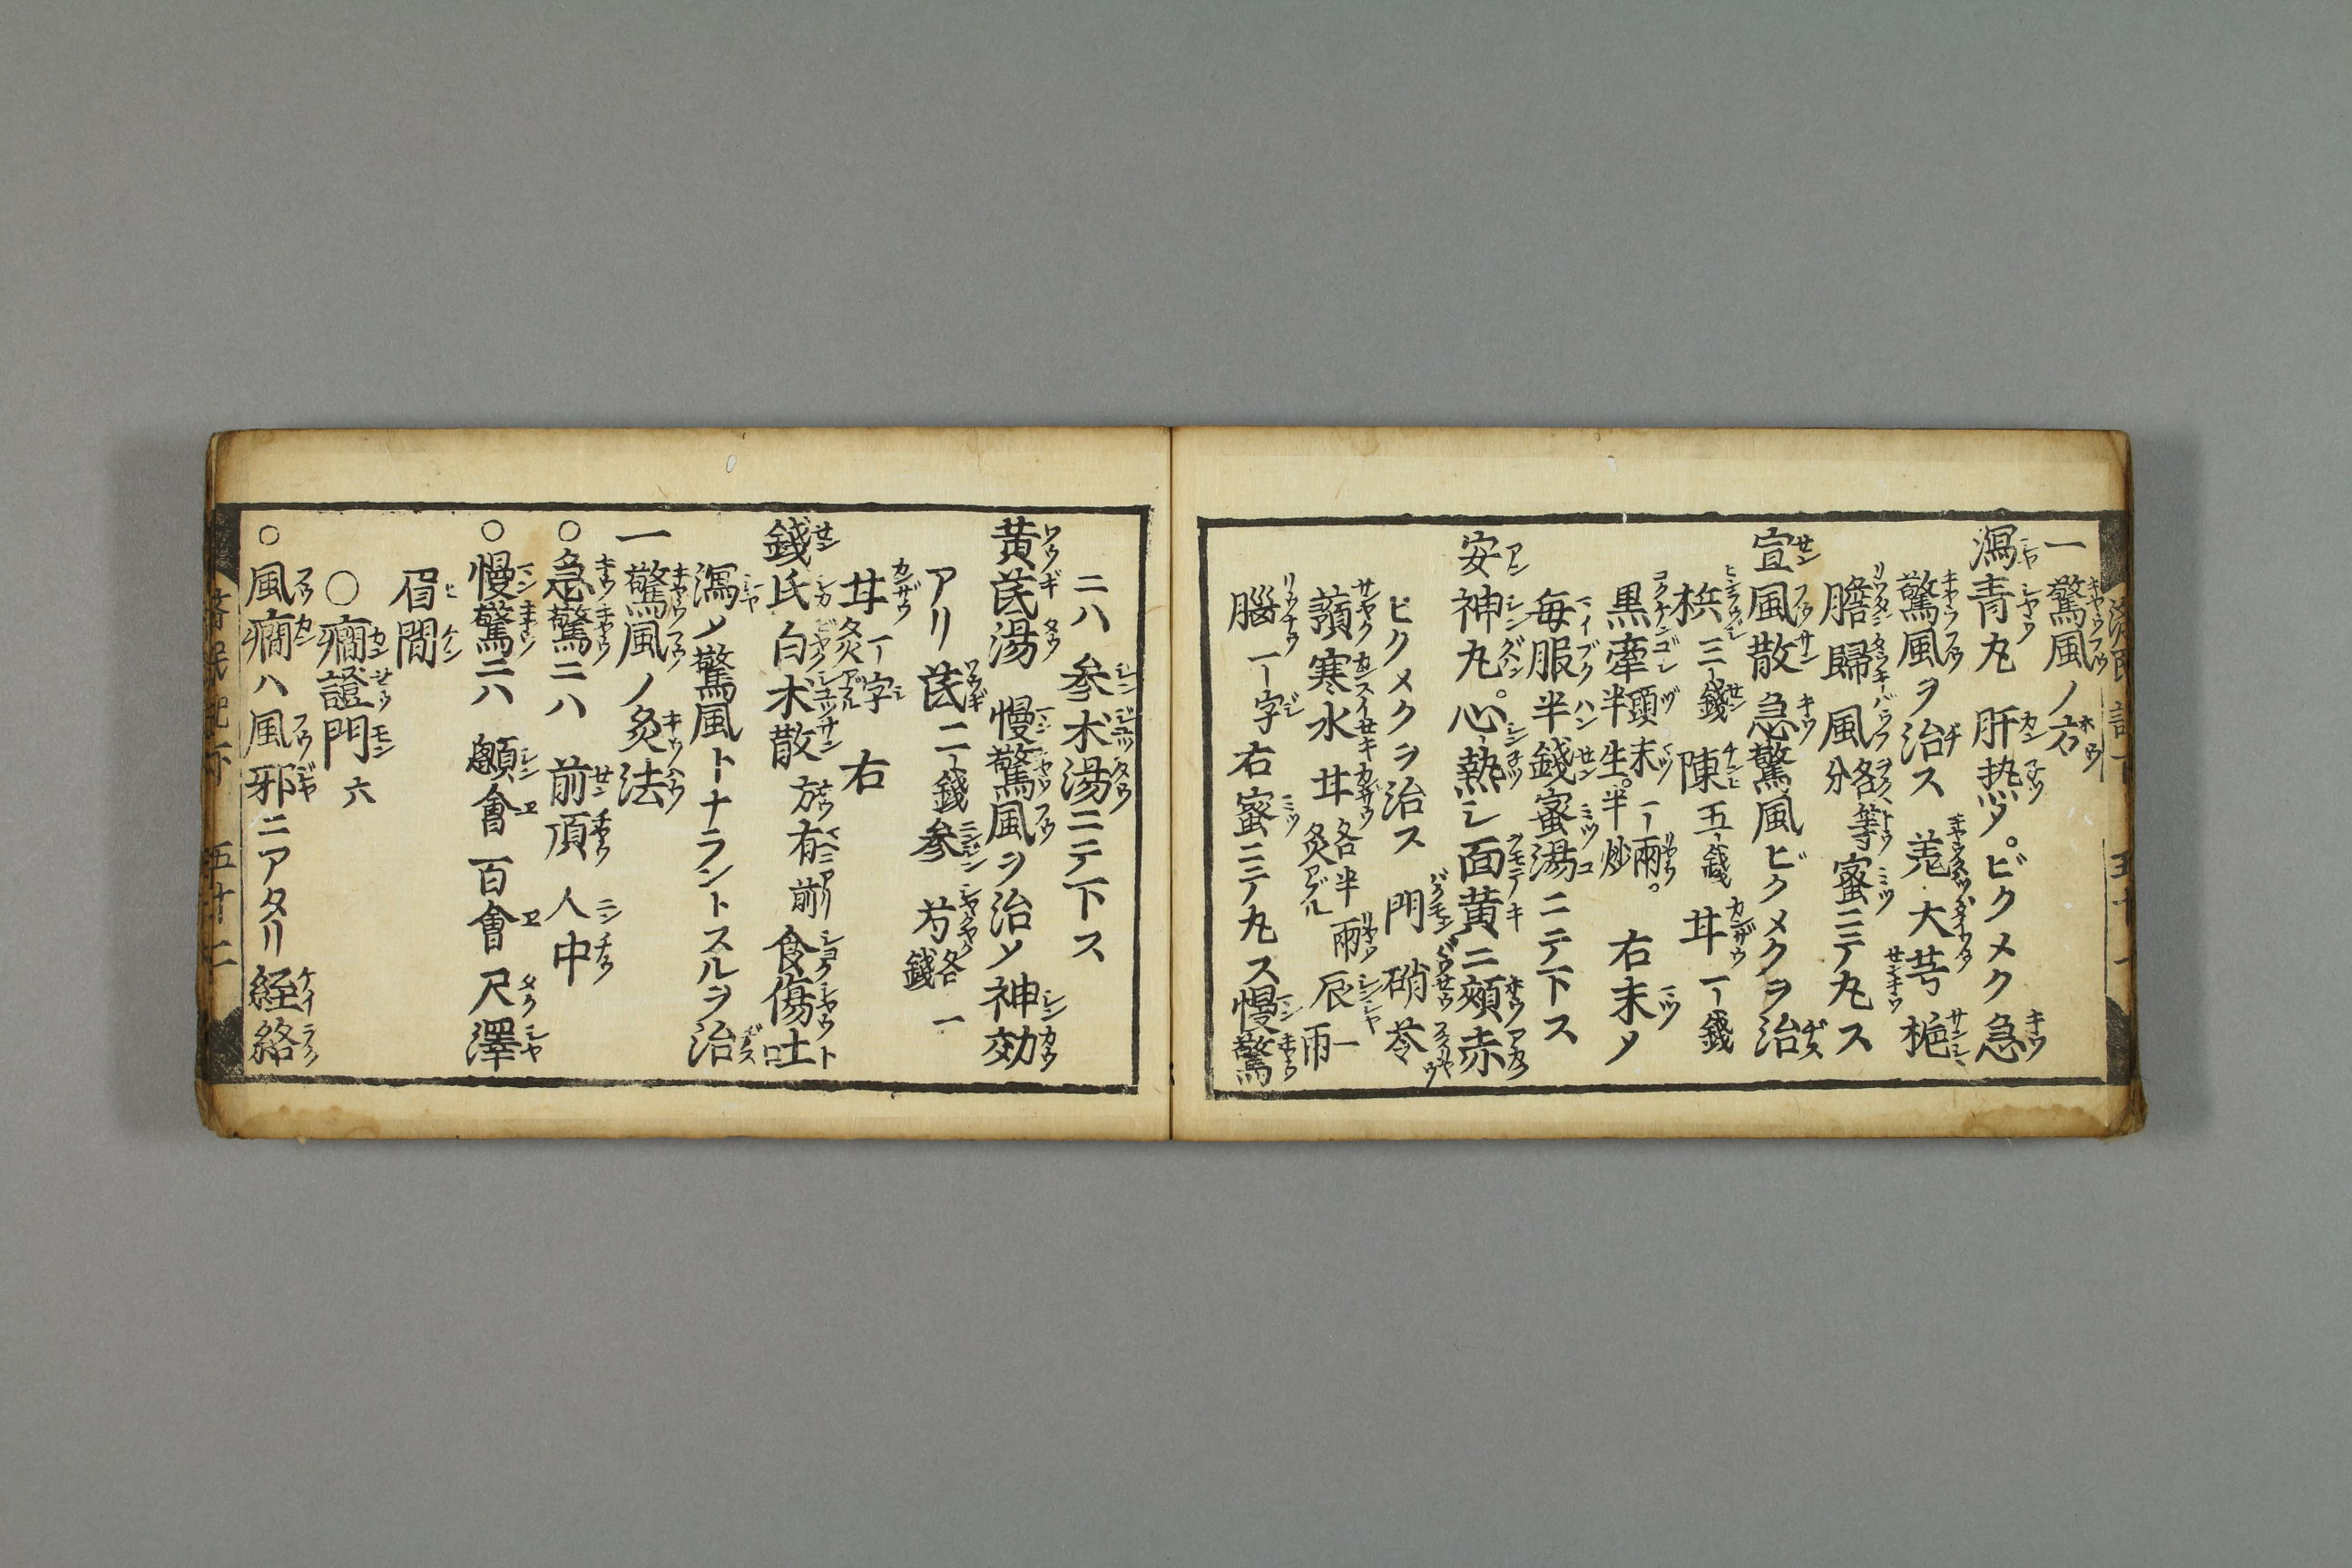 一驚風ノ方
瀉青丸 肝熱シ。ビクメク急
驚風ヲ治ス 羗 大 芎 梔
膽 歸 風 各等分 蜜ニテ丸ス
宣風散 急驚風ビクメクヲ治
梹 三錢 陳 五錢 甘 一錢
黒牽 半生。半炒 頭末 一兩。 右末メ
毎服半錢蜜湯ニテ下ス
安神丸。心熱シ面黄ニ頰赤
ビクメクヲ治ス 門 硝 苓
蕷 寒水 甘 炙 各半兩 辰 一兩
腦 一字 右蜜ニテ丸ス慢驚
ニハ参朮湯ニテ下ス
黄茋湯 慢驚風ヲ治メ神効
アリ 茋 二錢 参 芍 各一錢
甘 炙一字 右
錢氏白朮散 方有前 食傷吐
瀉メ驚風トナラントスルヲ治
一驚風ノ灸法
○急驚ニハ 前頂 人中
○慢驚ニハ 顖會 百會 尺澤
眉間
○癇證門 六
○風癇ハ風邪ニアタリ経絡
五十二